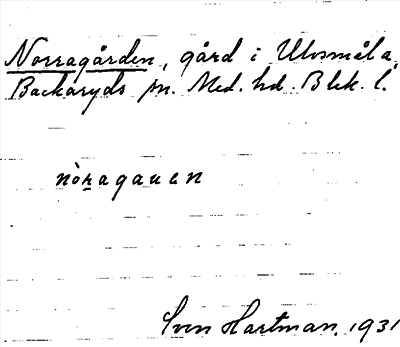 Norragården, gård i Ulvsmåla,
Backaryds sn. Med. hd. Blek. l.
nòragauen
Sven Hartman. 1931